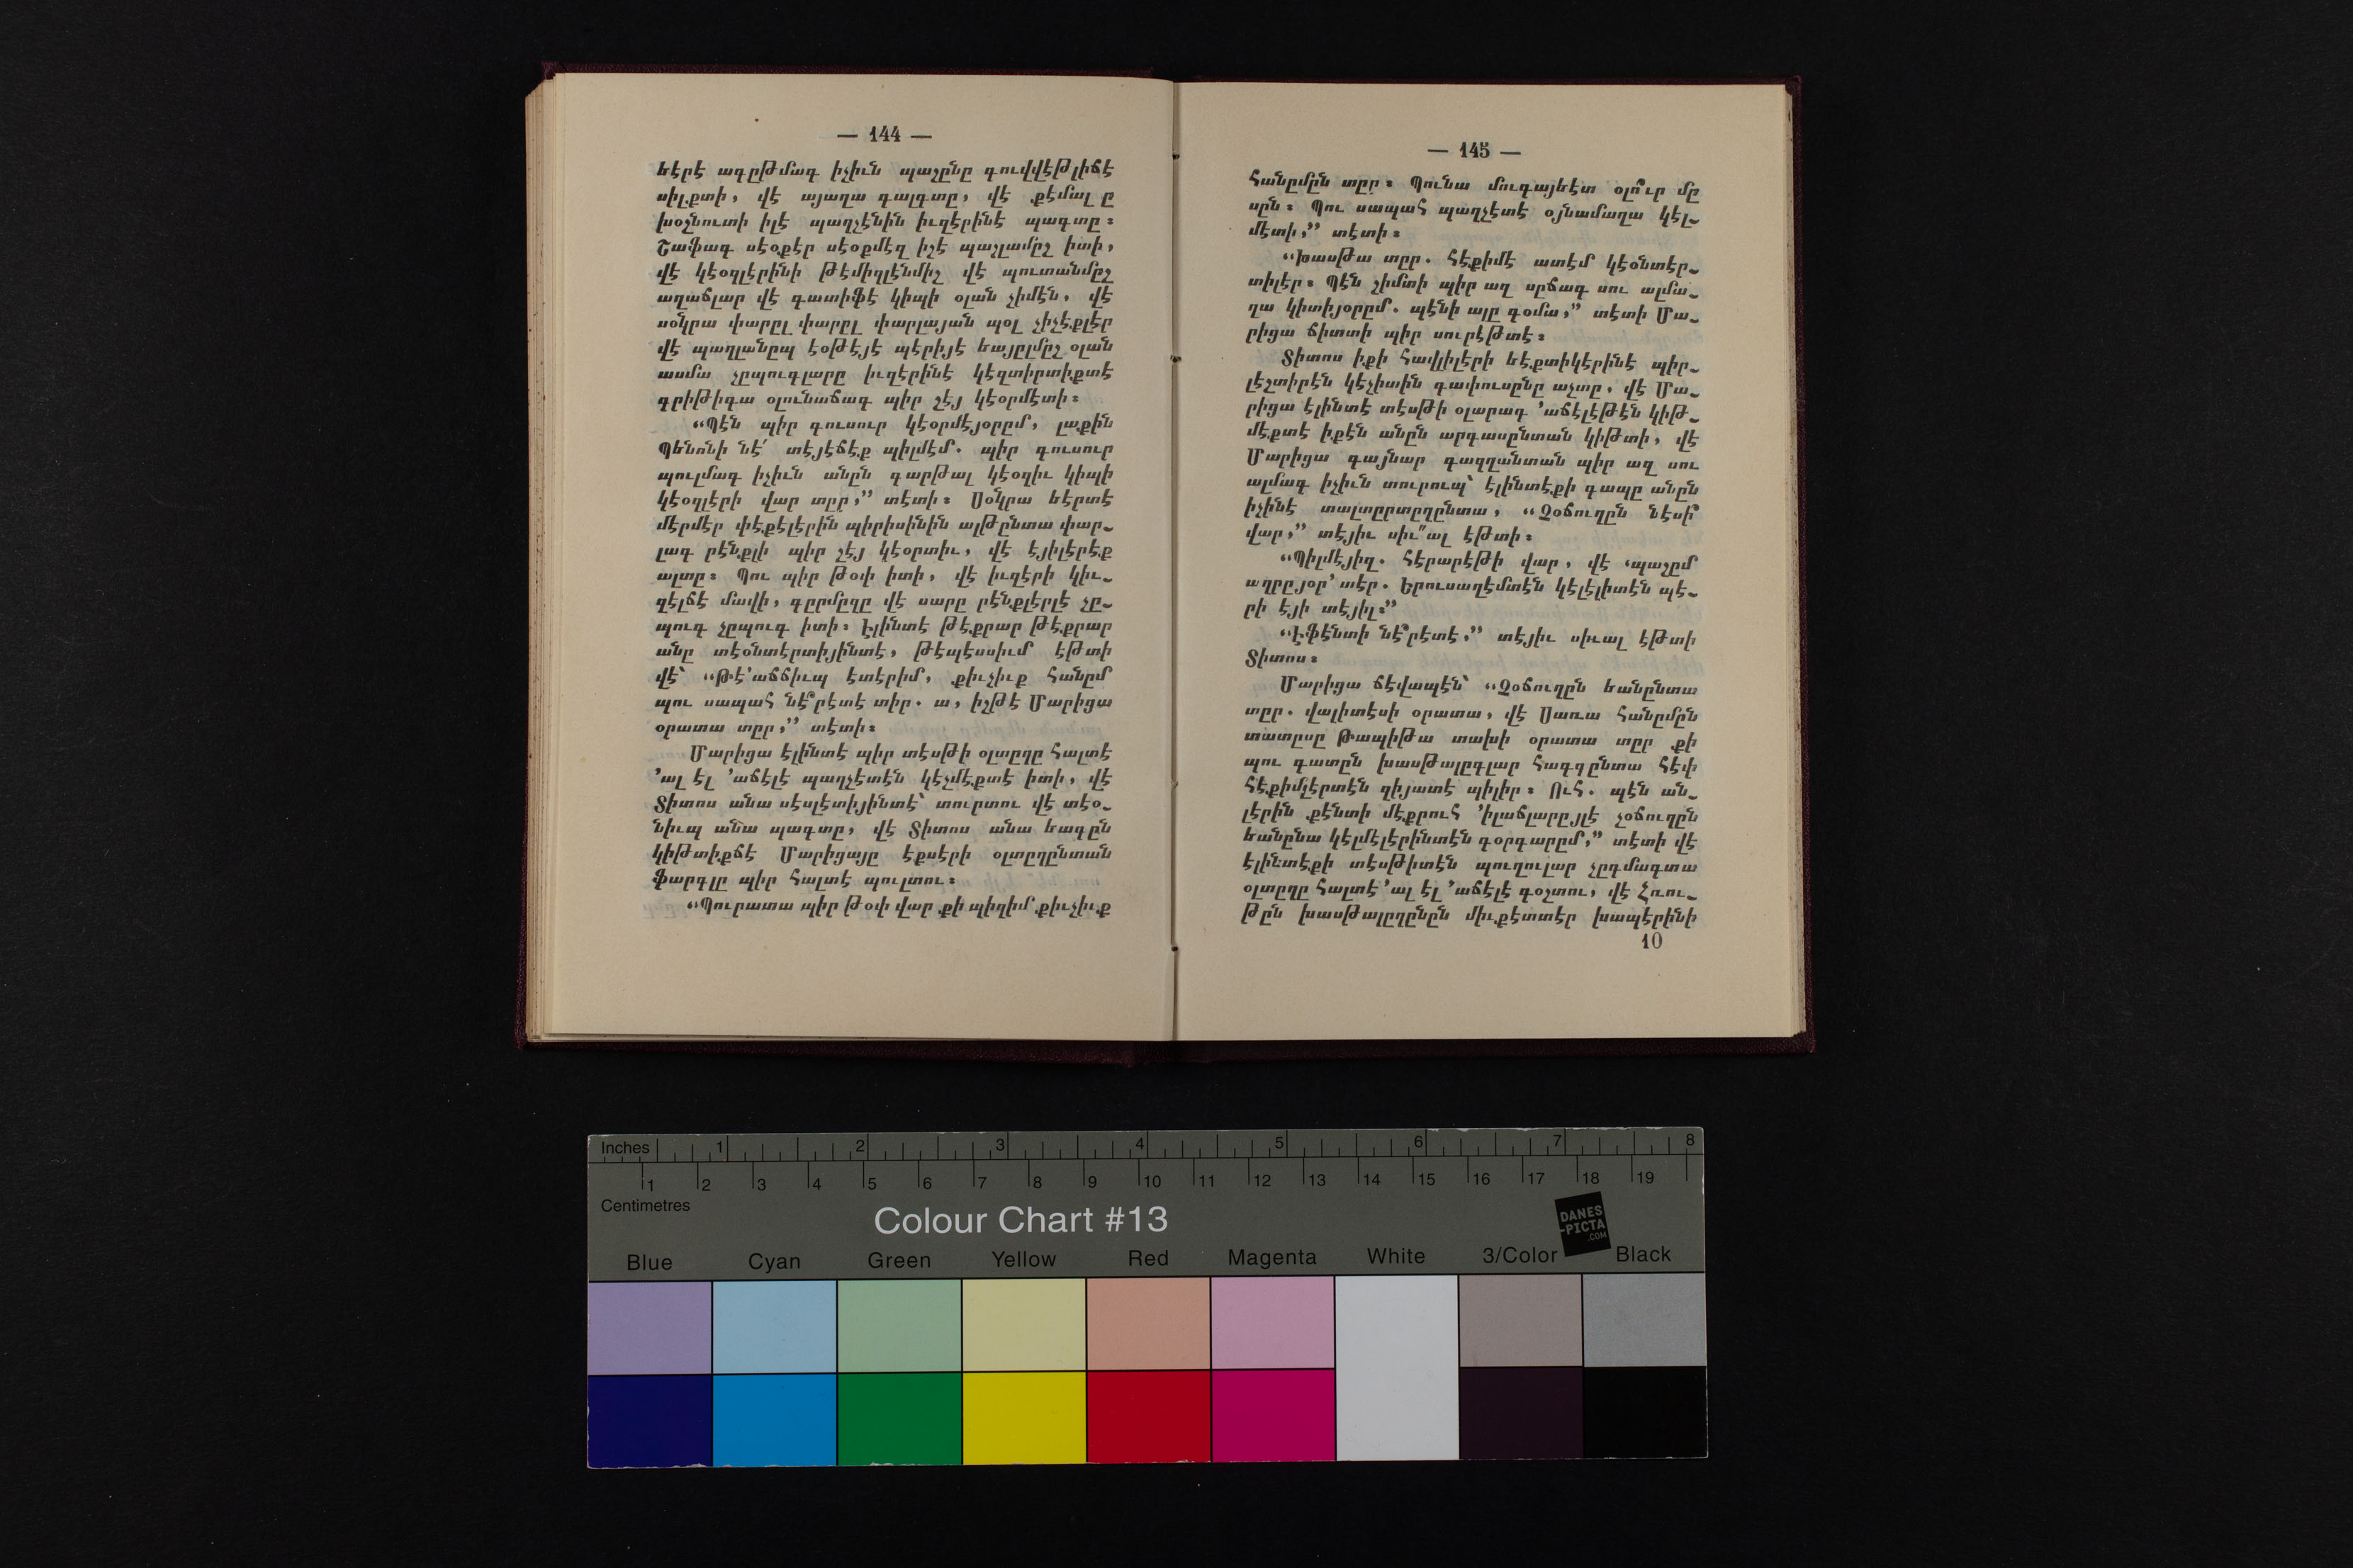 — 144 —
եէրէ ագըթմագ իչիւն պաչընը գուվվէթլիճէ
սիլքտի, վէ այաղա գալգտը, վէ քէմալ ը
խօշնուտի իլէ պաղչէնին իւզէրինէ պագտը։
Շաֆագ սէօքէր սէօքմէզ իչէ պաշլամըշ իտի,
վէ կէօզլէրինի թէմիզլէնմիշ վէ պուտանմըշ
աղաճլար վէ գատիֆէ կիպի օլան չիմէն, վէ
սօնկրա փարըլ փարըլ փարլայան պօլ չիչէքլէր
վէ պաղլանըպ էօթէյէ պէրիյէ եայըլմըշ օլան
ասմա չըպուգլարը իւզէրինէ կէզտիրտիքտէ
գրիթիգա օլունաճագ պիր շէյ կէօրմէտի։
“Պէն պիր գուսուր կէօրմէյօրըմ, լաքին
Պենոնի նէ՛ տէյէճէք պիլմէմ. պիր գուսուր
պուլմագ իչիւն անըն գարթալ կէօզիւ կիպի
կէօզլէրի վար տըր,” տէտի։ Սօնկրա եէրտէ
մէրմէր փէքէլէրին պիրիսինին ալթընտա փար-
լագ րէնքլի պիր շէյ կէօրտիւ, վէ էյիլէրէք
ալտը։ Պու պիր թօփ իտի, վէ իւզէրի կիւ-
զէլճէ մավի, գըրմըզը վէ սարը րէնքլէրլէ չը-
պուգ չըպուգ իտի։ Էլինտէ թէքրար թէքրար
անը տէօնտէրտիյինտէ, թէպէսսիւմ էթտի
վէ՝ “Թէ’աճճիւպ էտէրիմ, քիւչիւք հանըմ
պու սապահ նէ՞րէտէ տիր. ա, իշթէ Մարիցա
օրատա տըր,” տէտի։
Մարիցա էլինտէ պիր տէսթի օլտըղը հալտէ
’ալ էլ ’աճէլէ պաղչէտէն կէչմէքտէ իտի, վէ
Տիտոս անա սէսլէտիյինտէ՝ տուրտու վէ տէօ-
նիւպ անա պագտը, վէ Տիտոս անա եագըն
կիթտիքճէ Մարիցայը էքսէրի օլտըղընտան
ֆարգլը պիր հալտէ պուլտու։
“Պուրատա պիր թօփ վար քի պիզիմ քիւչիւք
— 145 —
հանըմըն տըր։ Պունա մուգայեէտ օլո՞ւր մը
սըն։ Պու սապահ պաղչէտէ օյնամաղա կէլ-
մէտի,” տէտի։
“Խասթա տըր. հէքիմէ ատէմ կէօնտէր-
տիլէր։ Պէն շիմտի պիր ազ սըճագ սու ալմա-
ղա կիտիյօրըմ. պէնի ալը գօմա,” տէտի Մա-
րիցա ճիտտի պիր սուրէթտէ։
Տիտոս իքի հավլիլէրի եէքտիկէրինէ պիր-
լէշտիրէն կէչիտին գափուսընը աչտը, վէ Մա-
րիցա էլինտէ տէսթի օլարագ ’աճէլէթէն կիթ-
մէքտէ իքէն անըն արգասընտան կիթտի, վէ
Մարիցա գայնար գազղանտան պիր ազ սու
ալմագ իչիւն տուրուպ՝ էլինտէքի գապը անըն
իչինէ տալտըրտըղընտա, “Չօճուղըն նէսի՞
վար,” տէյիւ սիւ՞ալ էթտի։
“Պիլմէյիզ. հէրարէթի վար, վէ ‘պաշըմ
աղրըյօր’ տէր. Երուսաղէմտէն կէլէլիտէն պէ-
րի էյի տէյիլ։”
“Էֆէնտի նէ՞րէտէ,” տէյիւ սիւալ էթտի
Տիտոս։
Մարիցա ճէվապէն՝ “Չօճուղըն եանընտա
տըր. վալիտէսի օրատա, վէ Սառա հանըմըն
տատըսը Թապիթա տախի օրատա տըր քի
պու գատըն խասթալըգլար հագգընտա հէփ
հէքիմլէրտէն զիյատէ պիլիր։ Ուհ. պէն ան-
լէրին քէնտի մէքրուհ ’իլաճլարըյլէ չօճուղըն
եանընա կէլմէլէրինտէն գօրգարըմ,” տէտի վէ
էլինտէքի տէսթիտէն պուղուլար չըգմագտա
օլտըղը հալտէ ’ալ էլ ’աճէլէ գօշտու, վէ Հռու-
թըն խասթալըղընըն միւքէտտէր խապէրինի
10
Inches 1 2 3 4 5 6 7 8
1 2 3 4 5 6 7 8 9 10 11 12 13 14 15 16 17 18 19
Centimetres
Colour Chart #13
DANES
-PICTA
.COM
Blue Cyan Green Yellow Red Magenta White 3/Color Black